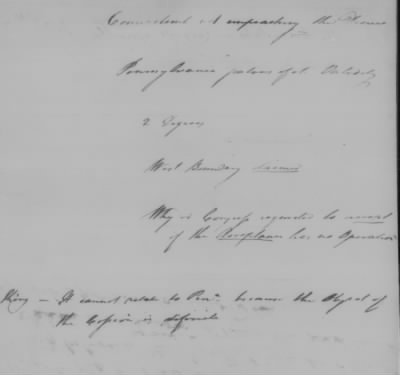 Connecticut not impeaching the
Pennsylvania
2 Degrees
West Boundary
Why is Congress requested to accept
if the Acceptance has no Operation
King — It cannot relate to Penn.a because the Object of
the Cession is definite